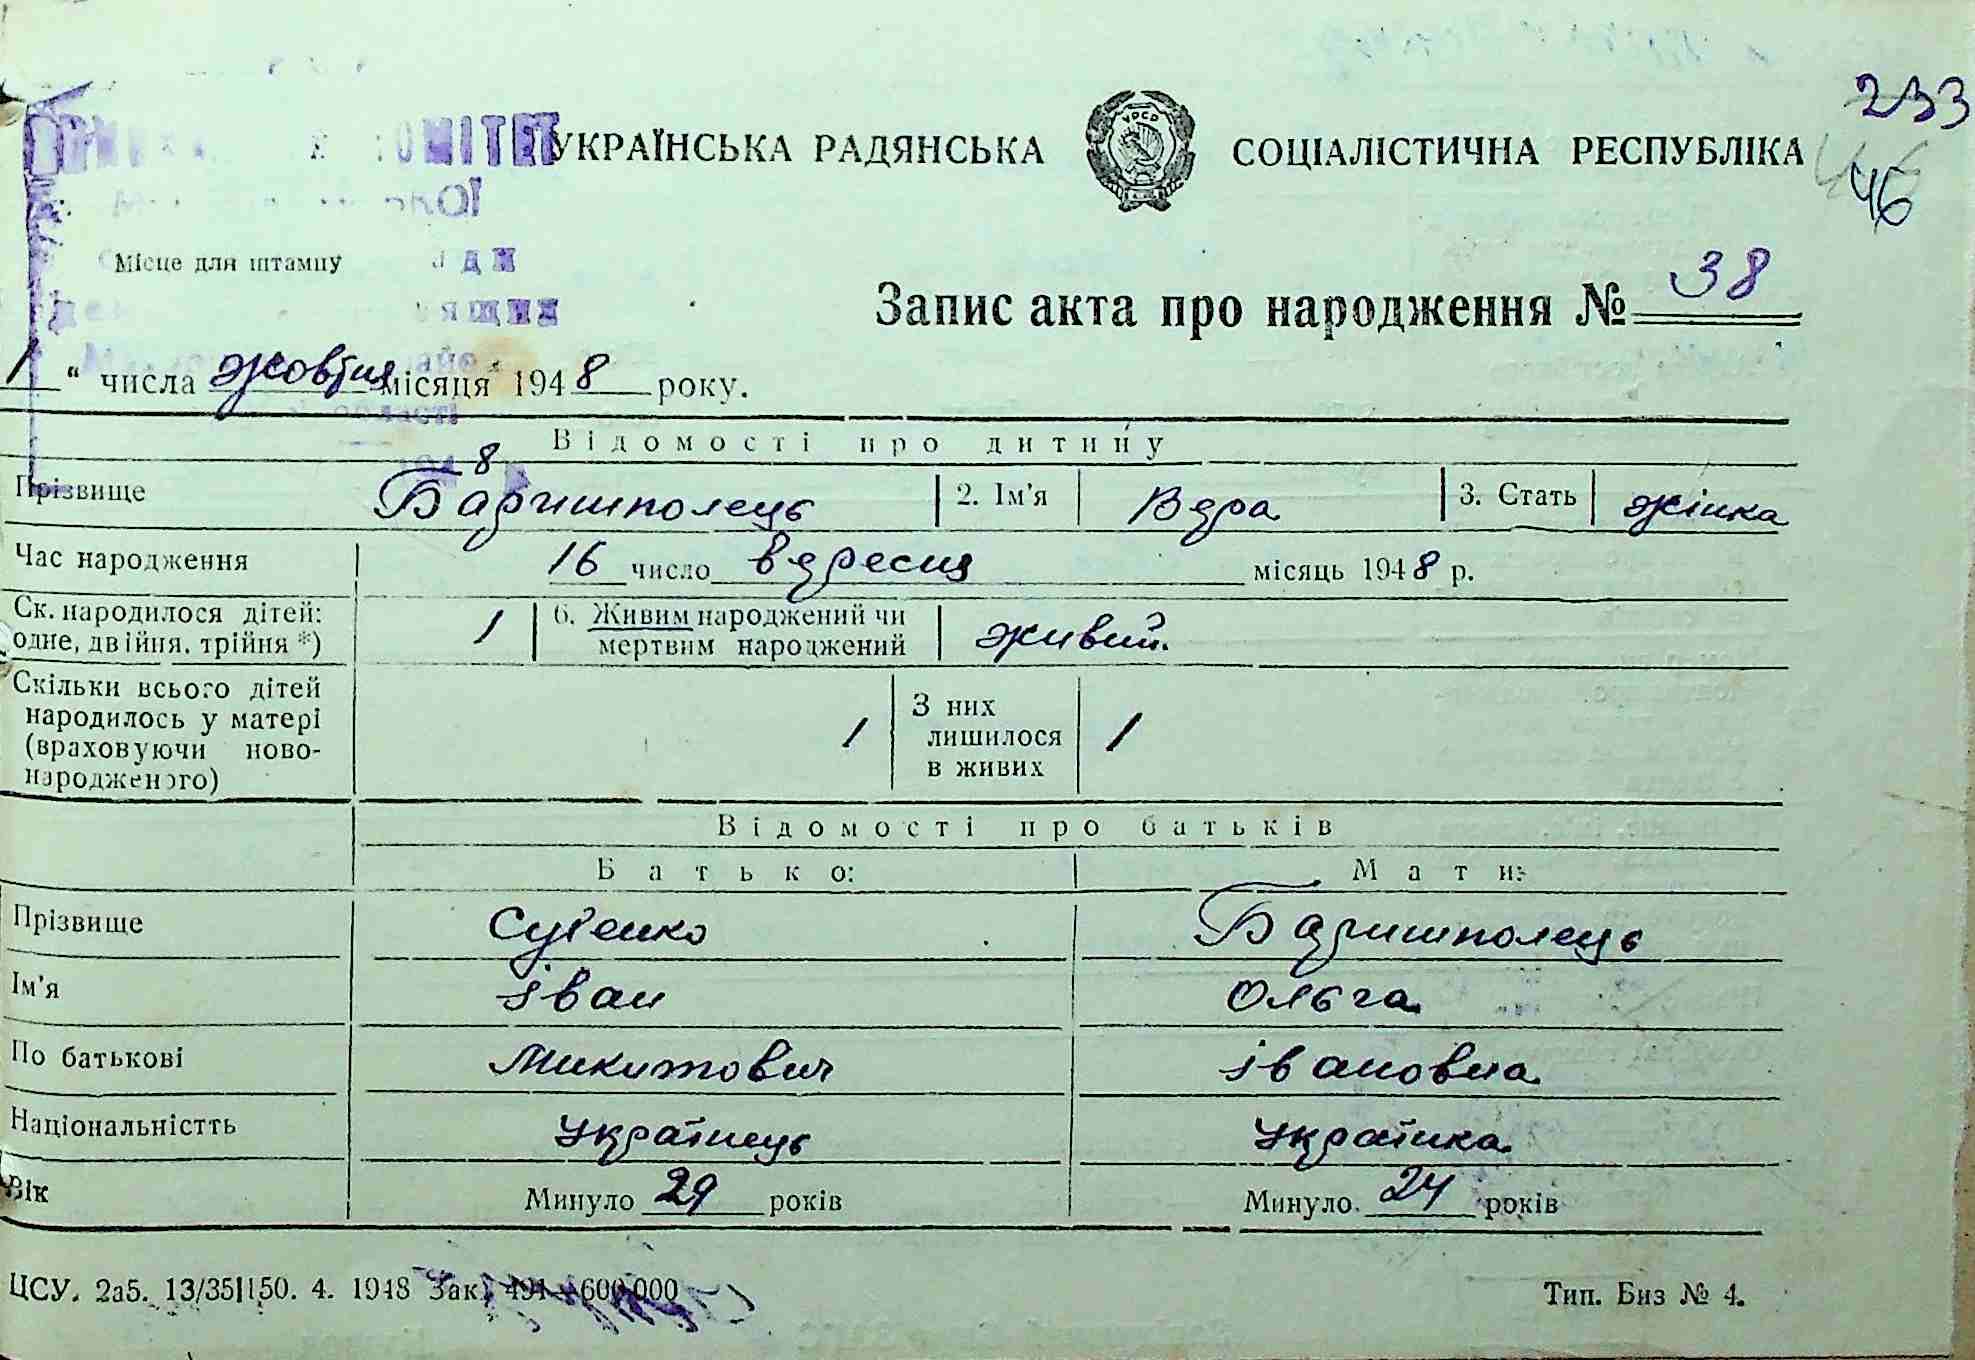 233
УКРАЇНСЬКА РАДЯНСЬКА СОЦІАЛІСТИЧНА РЕСПУБЛІКА
46
Місце для штампу
Запис акта про народження № 38
1 “ числа жовтня місяця 1948 року.
Відомості про дитину
8
Прізвище Баришполець 2. Ім'я Вєра 3. Стать жінка
Час народження 16 число вересня місяць 1948 р.
Ск. народилося дітей: одне, двійня, трійня *) 1 6. Живим народжений чи мертвим народжений живий.
Скільки всього дітей народилось у матері (враховуючи новонародженого) 1 З них лишилося в живих 1
Відомості про батьків
Батько: Мати:
Прізвище Сутенко Баришполець
Ім'я Іван Ольга
По батькові Микитович Івановна
Національністть Українець Українка
Вік Минуло 29 років Минуло 24 років
ЦСУ. 2а5. 13/35 150. 4. 1948 Зак. 491—600.000 Тип. Биз № 4.